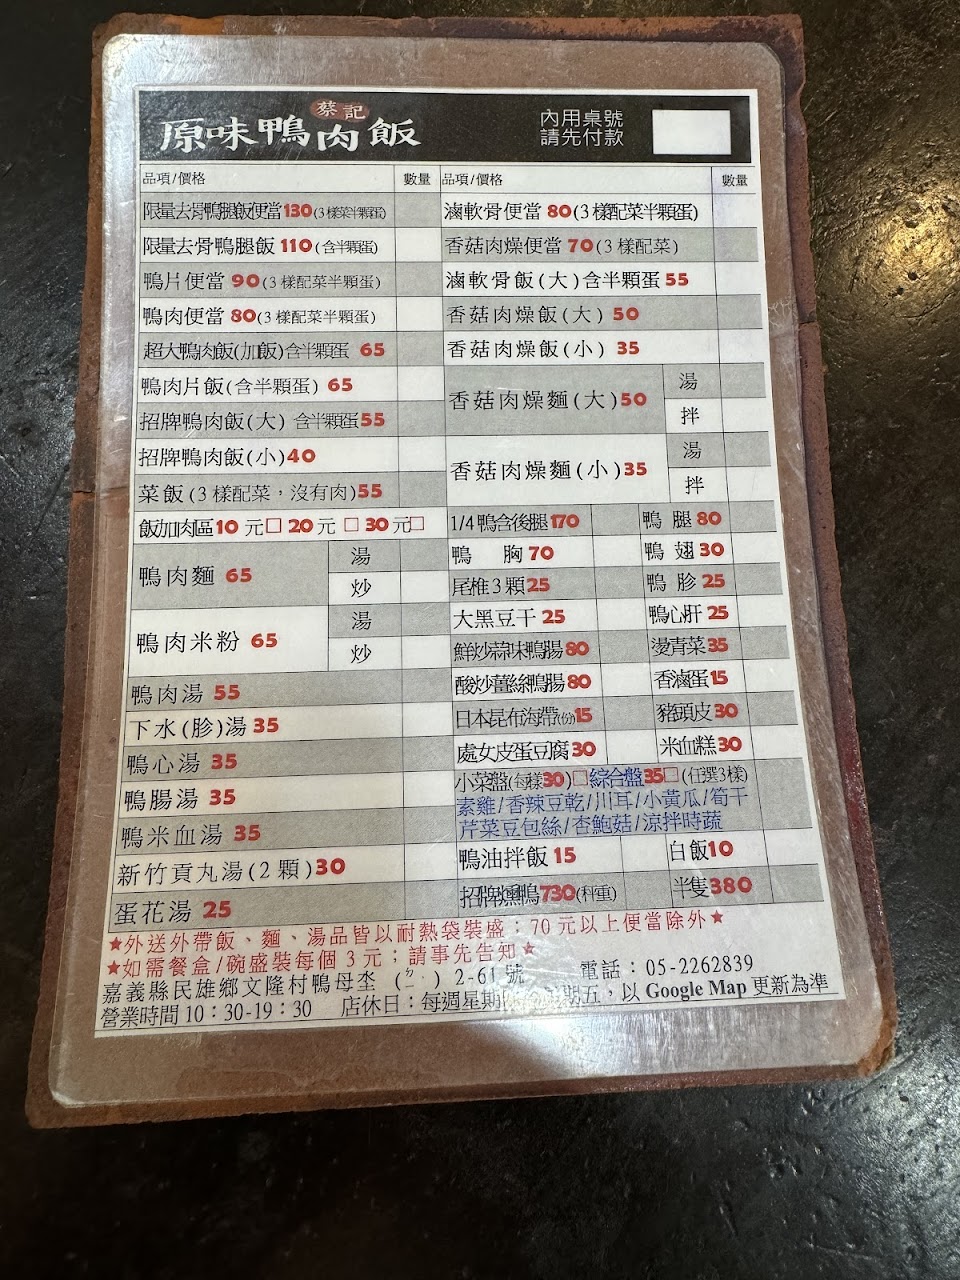 蔡記
原味鴨肉飯
內用桌號
請先付款
品項/價格 數量
限量去骨鴨腿飯便當130(3樣菜半顆蛋)
限量去骨鴨腿飯 110(含半顆蛋)
鴨片便當 90(3樣配菜半顆蛋)
鴨肉便當 80(3樣配菜半顆蛋)
超大鴨肉飯(加飯)含半顆蛋 65
鴨肉片飯(含半顆蛋) 65
招牌鴨肉飯(大) 含半顆蛋55
招牌鴨肉飯(小)40
菜飯(3樣配菜,沒有肉)55
飯加肉區10元□ 20元 □ 30元□
鴨肉麵 65 湯
炒
鴨肉米粉 65 湯
炒
鴨肉湯 55
下水(胗)湯 35
鴨心湯 35
鴨腸湯 35
鴨米血湯 35
新竹貢丸湯(2顆)30
蛋花湯 25
品項/價格 數量
滷軟骨便當 80(3樣配菜半顆蛋)
香菇肉燥便當 70(3樣配菜)
滷軟骨飯(大)含半顆蛋 55
香菇肉燥飯(大) 50
香菇肉燥飯(小) 35
香菇肉燥麵(大)50 湯
拌
香菇肉燥麵(小)35 湯
拌
1/4鴨含後腿170 鴨 腿 80
鴨 胸 70 鴨 翅 30
尾椎3顆25 鴨 胗 25
大黑豆干 25 鴨心肝 25
鮮炒蒜味鴨腸80 燙青菜35
酸炒薑絲鴨腸80 香滷蛋15
日本昆布海帶(份)15 豬頭皮30
處女皮蛋豆腐30 米血糕30
小菜盤(每樣30)□綜合盤35□(任選3樣)
素雞/香辣豆乾/川耳/小黃瓜/筍干
芹菜豆包絲/杏鮑菇/涼拌時蔬
鴨油拌飯 15 白飯10
招牌燻鴨730(秤重) 半隻380
★外送外帶飯、麵、湯品皆以耐熱袋裝盛;70元以上便當除外★
★如需餐盒/碗盛裝每個3元;請事先告知★
嘉義縣民雄鄉文隆村鴨母坔 2-61號 電話:05-2262839
營業時間10:30-19:30 店休日:每週星期 期五,以 Google Map 更新為準